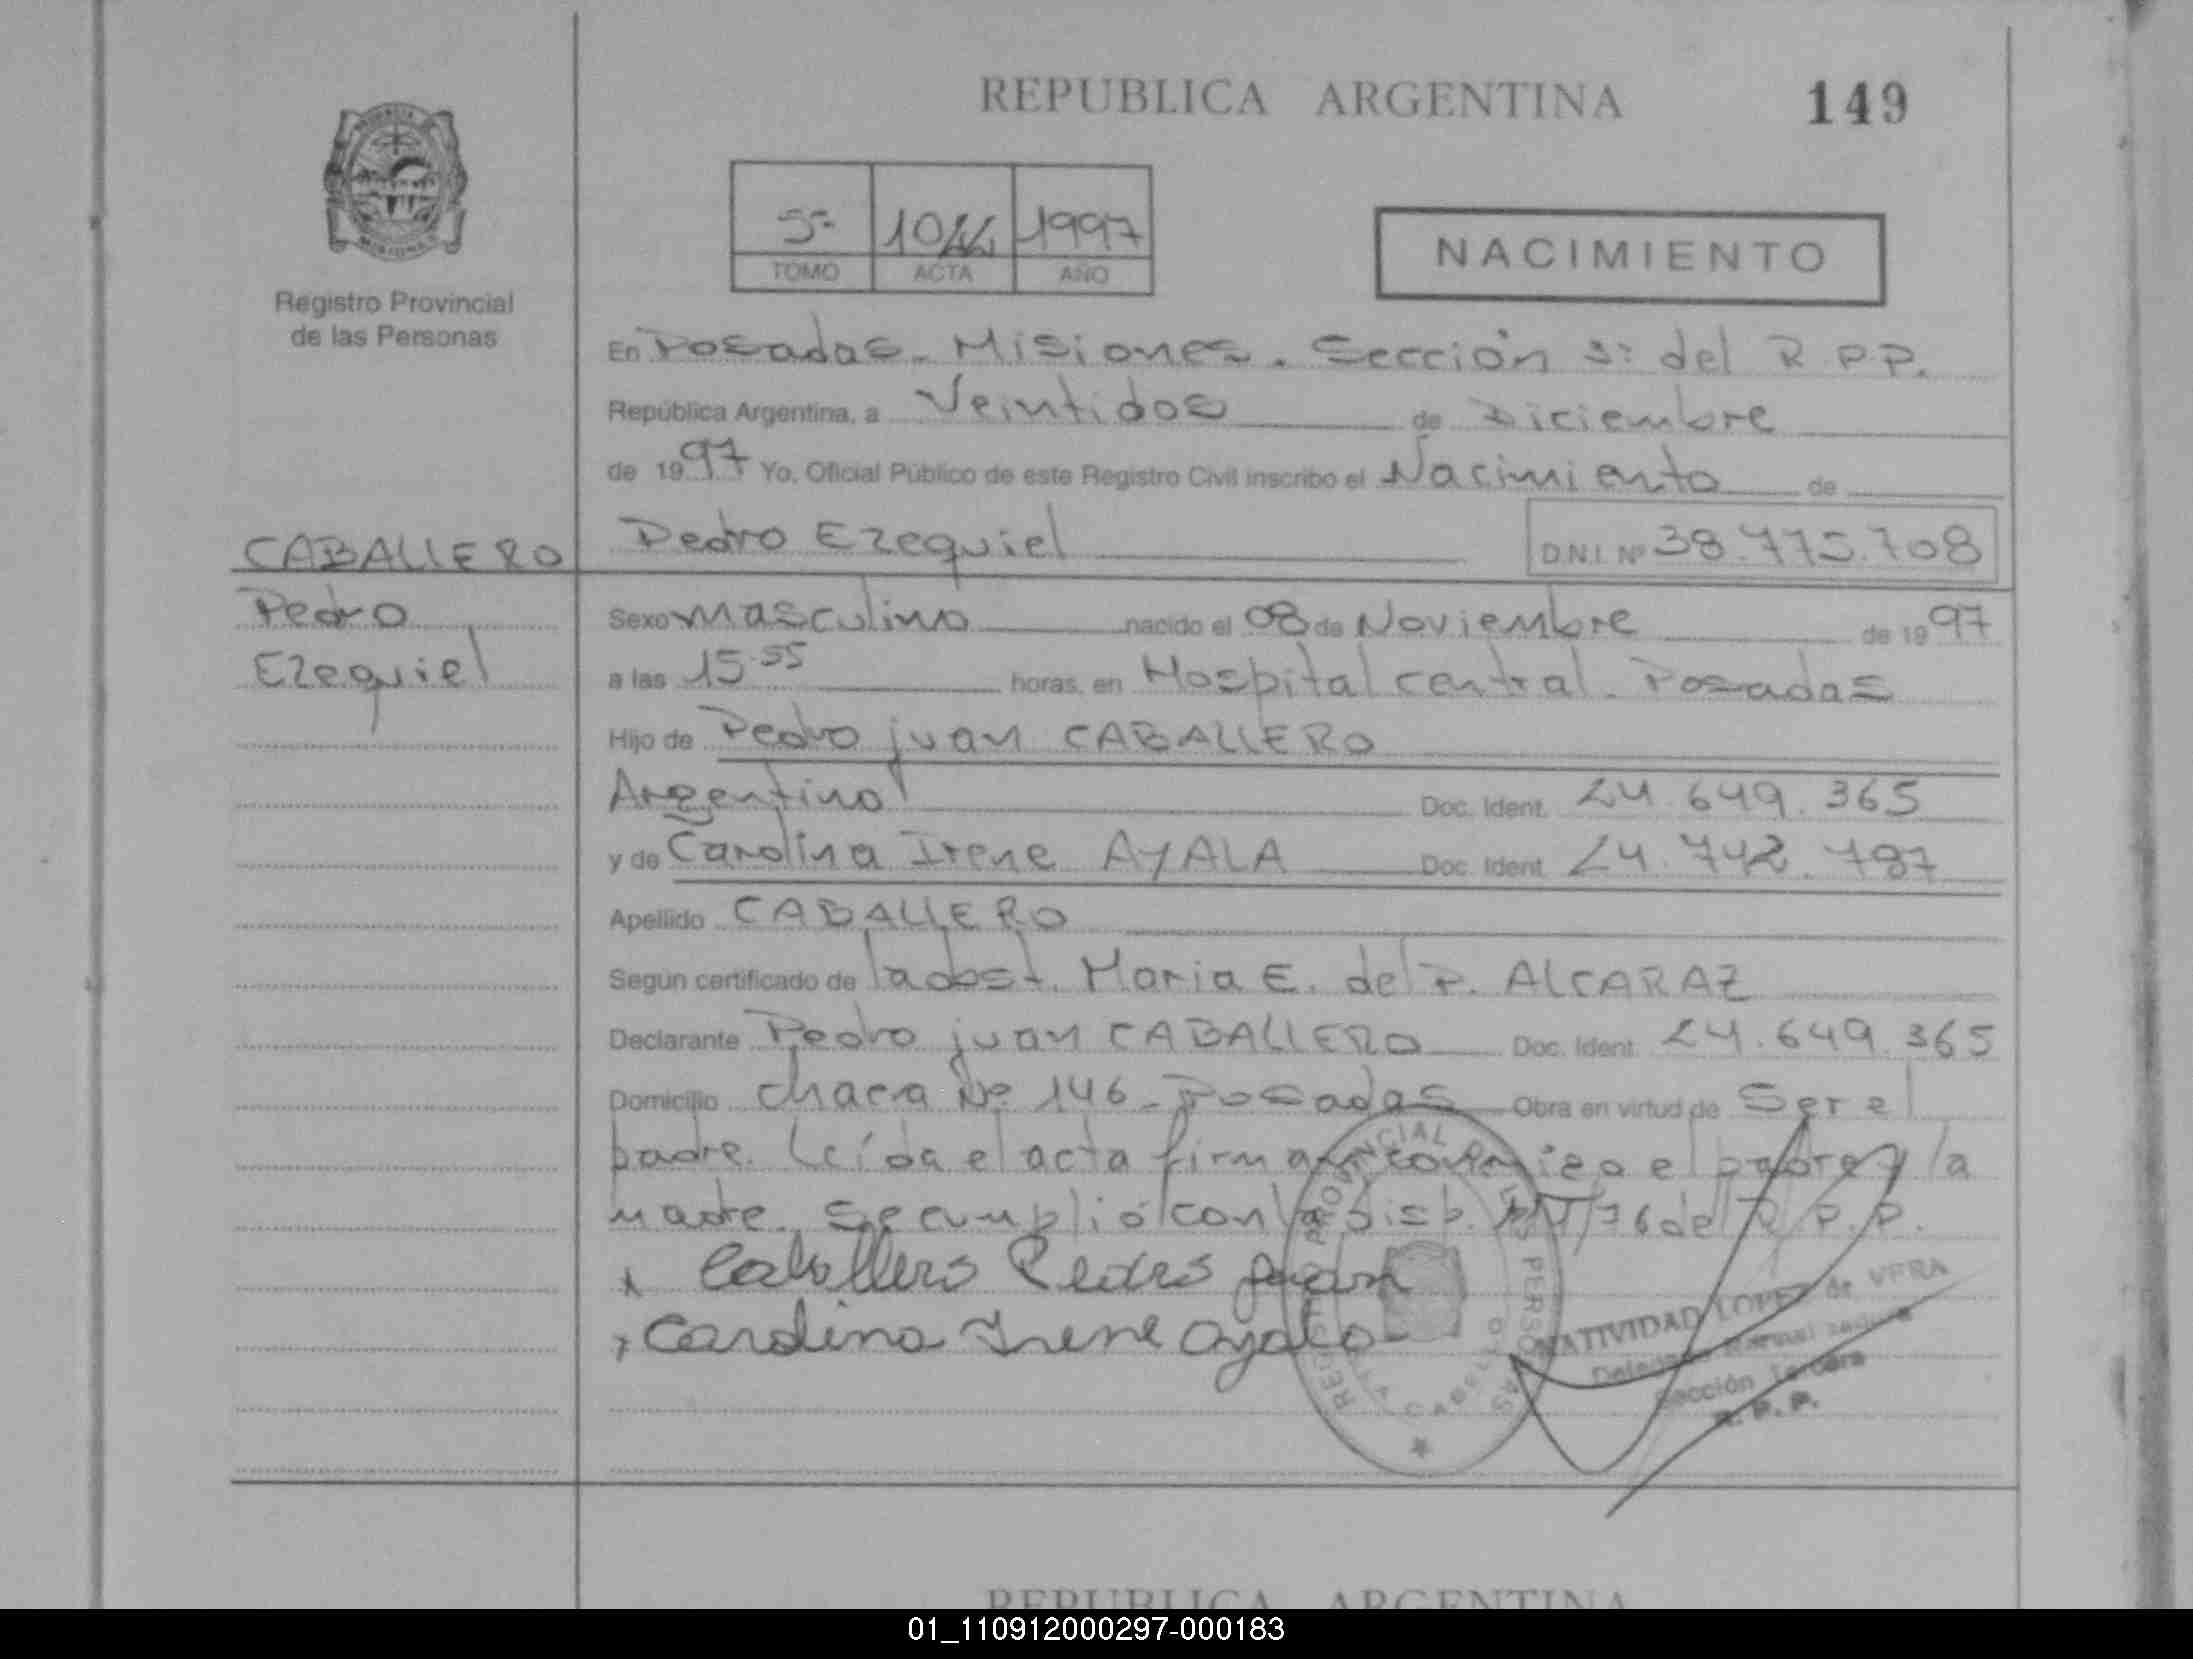 REPUBLICA ARGENTINA
149
Registro Provincial
de las Personas
5º 1997
TOMO ACTA AÑO
NACIMIENTO
En Posadas - Misiones. Sección 3º del R.P.P.
República Argentina, a Veintidos de Diciembre
de 1997 Yo, Oficial Público de este Registro Civil inscribo el Nacimiento de
CABALLERO
Pedro Ezequiel D.N.I. Nº 38.775.708
Pedro
Ezequiel
Sexo masculino nacido el 08 de Noviembre de 1997
a las 15.55 horas, en Hospital central. Posadas
Hijo de Pedro juan CABALLERO
Argentino Doc. Ident. 24.649.365
y de Carolina Irene AYALA Doc. Ident. 24.742.787
Apellido CABALLERO
Según certificado de la obst. Maria E. del P. ALCARAZ
Declarante Pedro juan CABALLERO Doc. Ident. 24.649.365
Domicilio chacra Nº 146 - Posadas Obra en virtud de Ser el
padre. Leída el acta firman conmigo el padre y la
madre. Se cumplió con la Disp. /76 del R.P.P.
x Caballero Pedro Juan
x Carolina Irene Ayala
REGISTRO PROVINCIAL DE LAS PERSONAS
NATIVIDAD LOPEZ de VERA
Sección Tercera
R.P.P.
REPUBLICA ARGENTINA
01_110912000297-000183